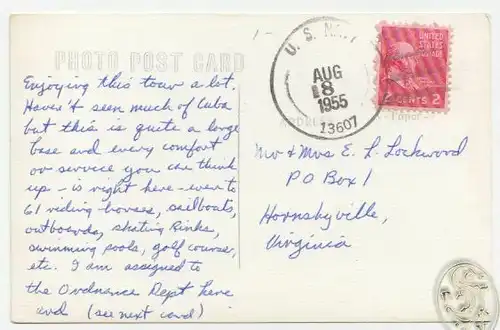 PHOTO POST CARD
Enjoying this tour a lot.
Haven't seen much of Cuba
but this is quite a large
base and every comfort
or service you can think
up - is right here - even to
61 riding horses, sailboats,
outboards, skating rinks,
swimming pools, golf course,
etc. I am assigned to
the Ordnance Dept here
and (see next card)
U. S. NAVY
AUG
8
1955
13607
UNITED
STATES
POSTAGE
2 CENTS 2
Mr & Mrs E. L. Lockwood
P O Box 1
Hornsbyville,
Virginia